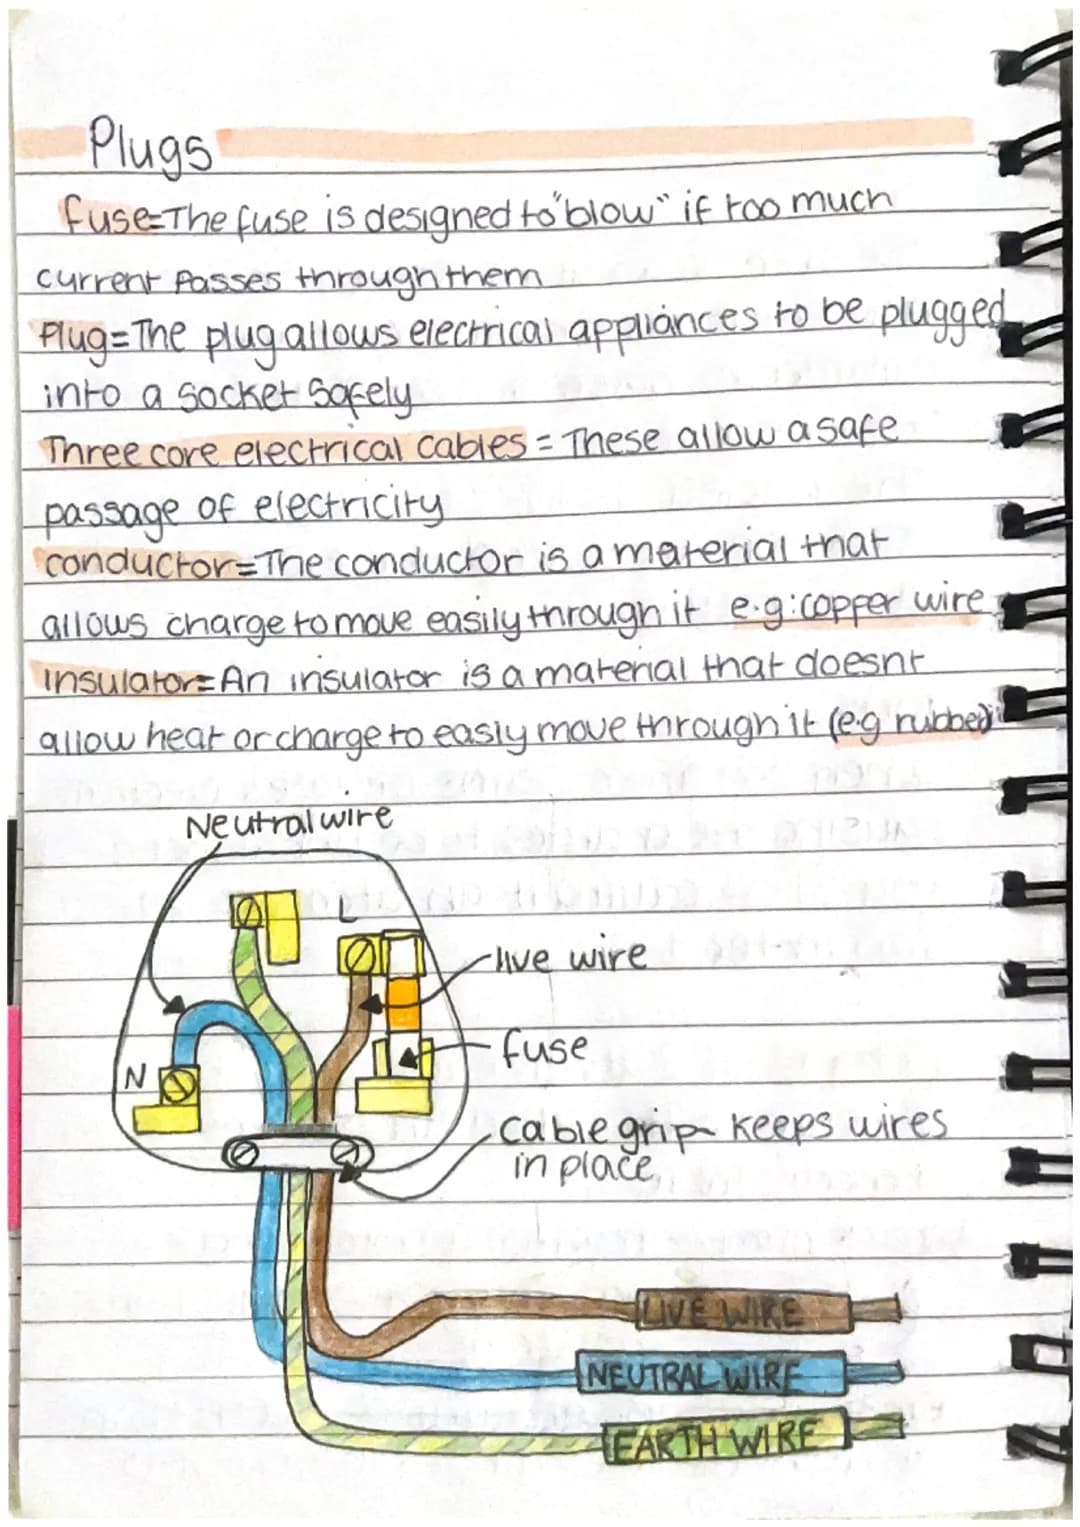 Plugs
fuse=The fuse is designed to "blow" if too much
current passes through them
Plug=The plug allows electrical appliances to be plugged
into a socket safely
Three core electrical cables = These allow a safe
passage of electricity
conductor=The conductor is a material that
allows charge to move easily through it e.g:copper wire
insulator=An insulator is a material that doesnt
allow heat or charge to easly move through it (e.g rubber)
Neutral wire
L
live wire
fuse
N
Cable grip- keeps wires
in place
LIVE WIRE
NEUTRAL WIRE
EARTH WIRE